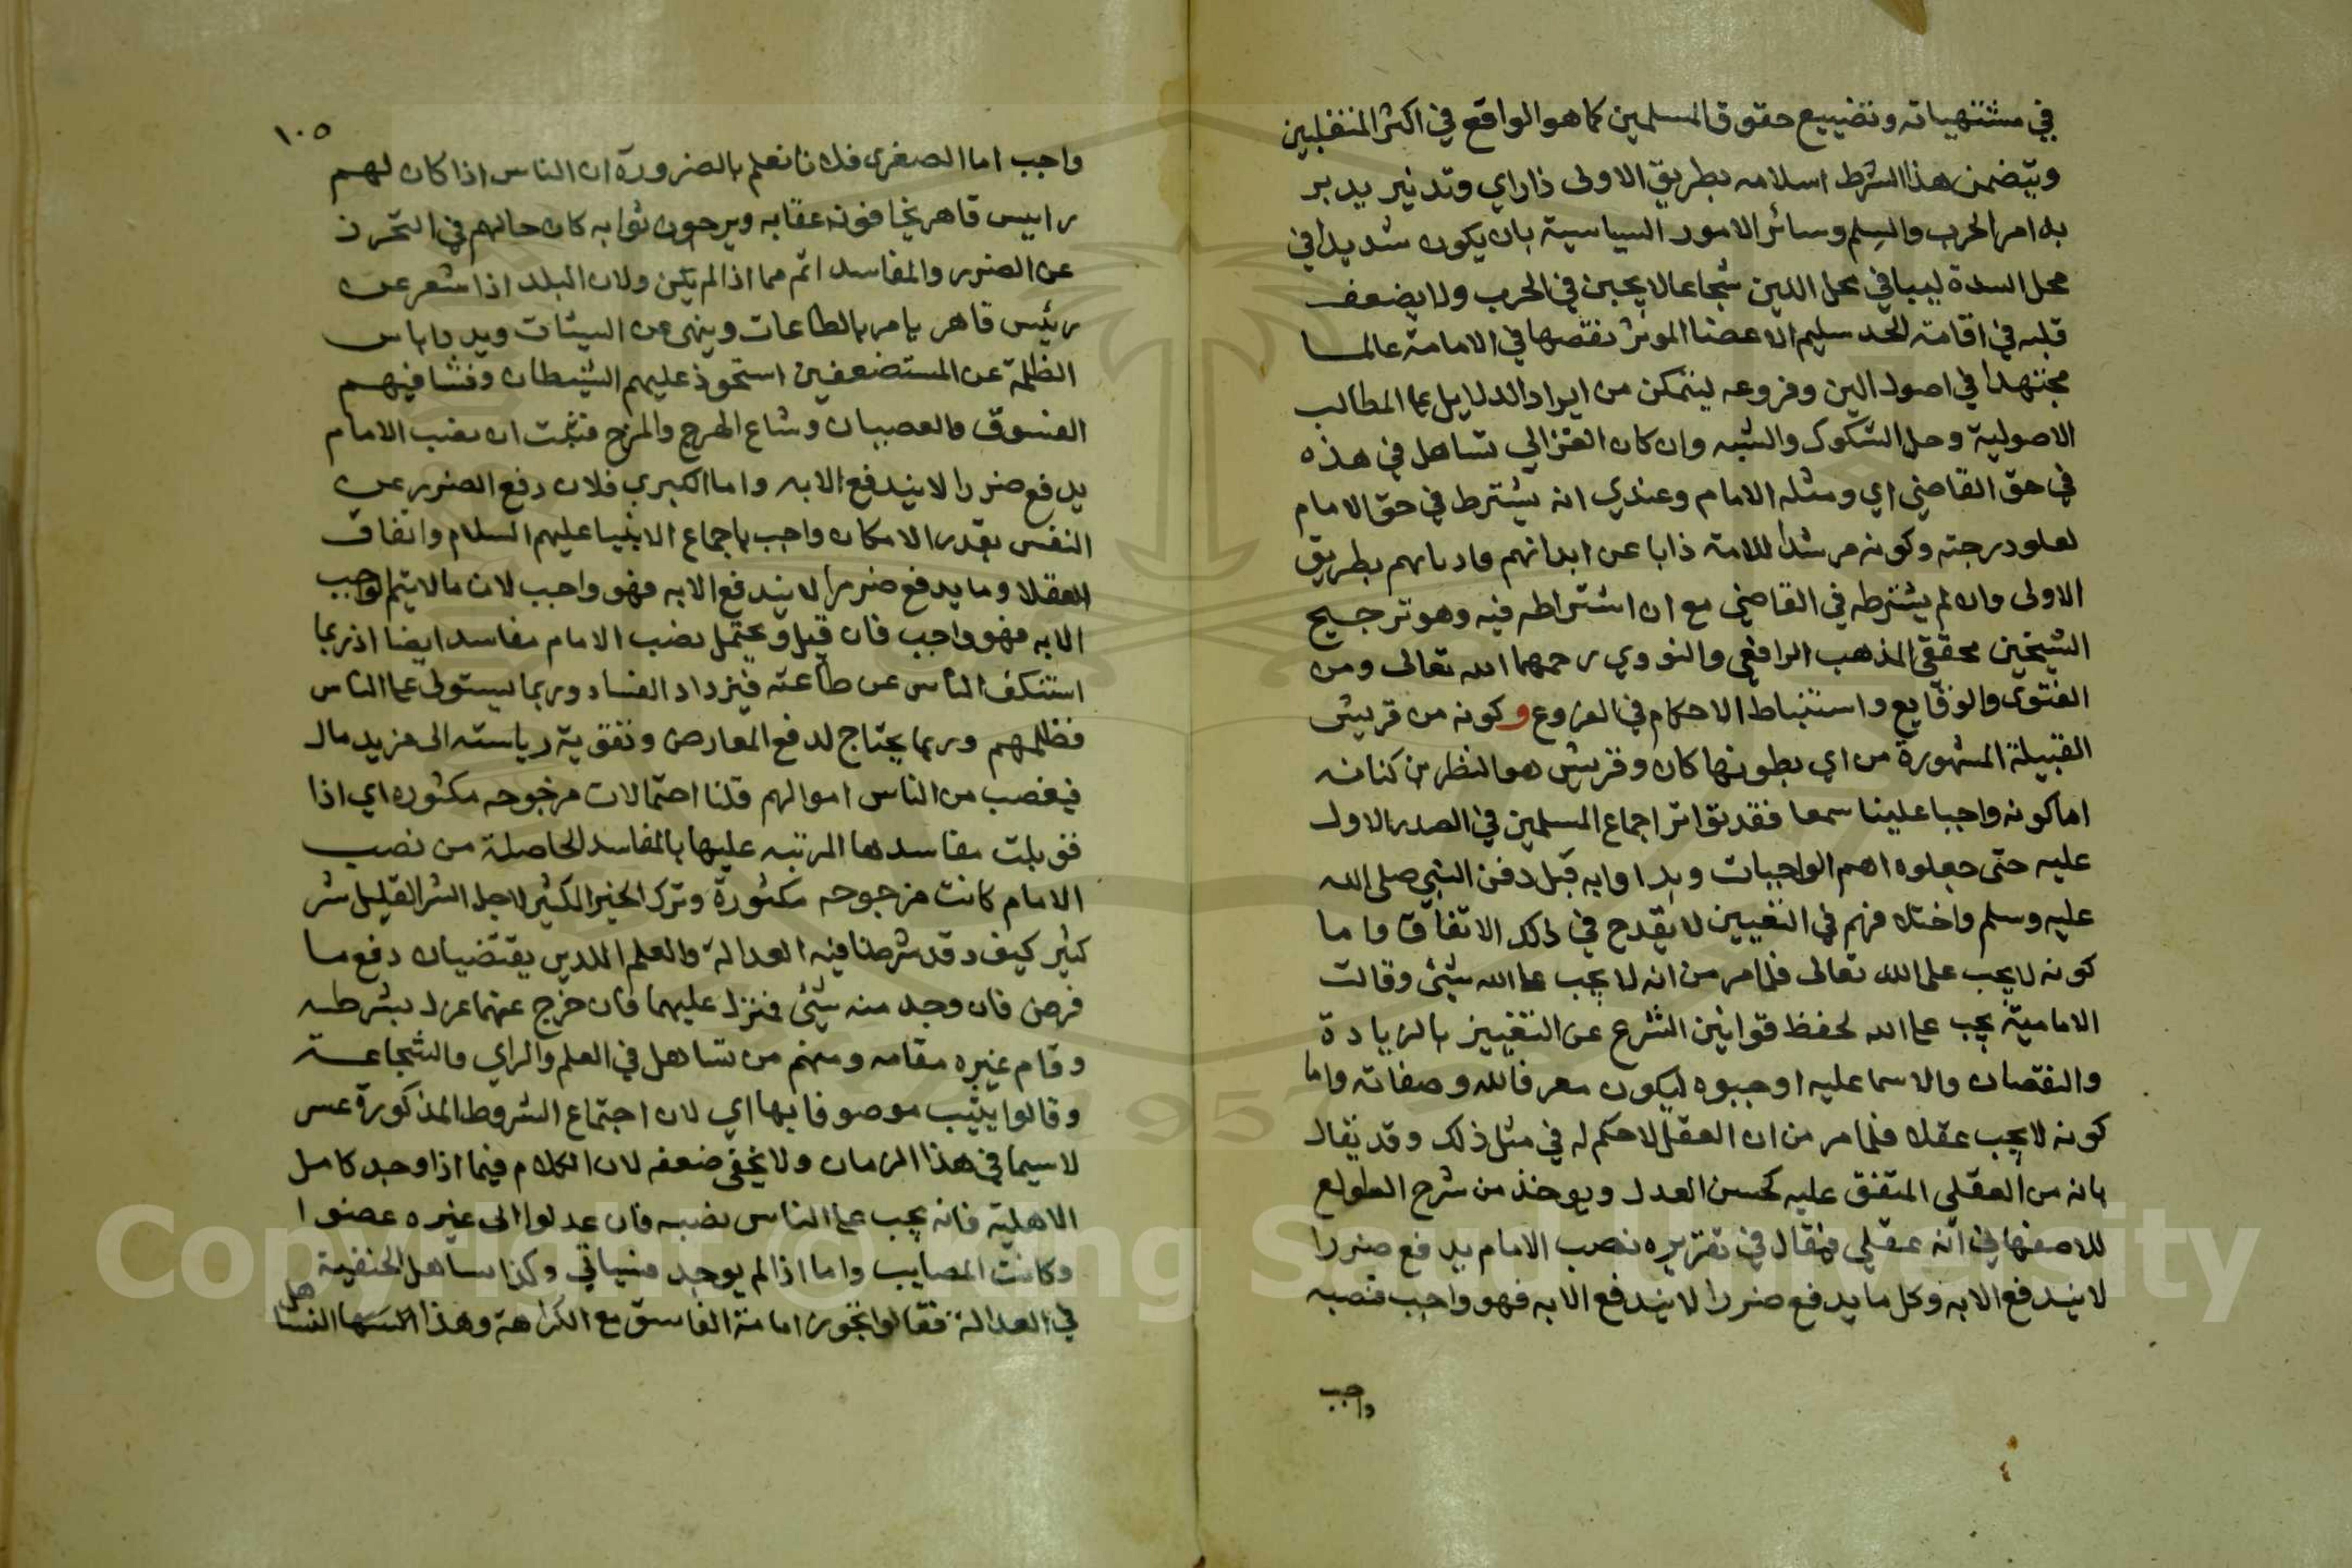 في مشتهياته وتضييع حقوق المسلمين كما هو الواقع في اكثر المتغلبين
ويتضمن هذا الشرط اسلامه بطريق الاولى ذا راي وتدبير يدبر
به امر الحرب والسلم وسائر الامور السياسية بان يكون شديدا في
محل الشدة لينا في محل اللين شجاعا لا يجبن في الحرب ولا يضعف
قلبه في اقامة الحد سليم الاعضا الموثر نقصها في الامامة عالما
مجتهدا في اصول الدين وفروعه ليتمكن من ايراد الدلايل على المطالب
الاصولية وحل الشكوك والشبه وان كان الغزالي تساهل في هذه
في حق القاضي اي ومثله الامام وعندي انه يشترط في حق الامام
لعلو درجته وكونه مرشدا للامة ذابا عن ابدانهم واديانهم بطريق
الاولى وان لم يشترطه في القاضي مع ان اشتراطه فيه وهو ترجيح
الشيخين محققي المذهب الرافعي والنووي رحمهما الله تعالى ومن
الفتوى والوقايع واستنباط الاحكام في الفروع وكونه من قريش
القبيلة المشهورة من اي بطونها كان وقريش هو النظر بن كنانه
اما كونه واجبا علينا سمعا فقد تواتر اجماع المسلمين في الصدر الاول
عليه حتى جعلوه اهم الواجبات وبداوا به قبل دفن النبي صلى الله
عليه وسلم واختلافهم في التعيين لا يقدح في ذلك الاتفاق واما
كونه لا يجب على الله تعالى فلما مر من انه لا يجب على الله شيئ وقالت
الامامية يجب على الله لحفظ قوانين الشرع عن التغيير بالزيادة
والنقصان والاسماعليه اوجبوه ليكون معرفا لله وصفاته واما
كونه لا يجب عقلا فلما مر من ان العقل لا حكم له في مثل ذلك وقد يقال
بانه من العقلي المتفق عليه كحسن العدل ويوخذ من شرح الطوالع
للاصفهاني انه عقلي فقال في تقريره نصب الامام يدفع ضررا
لا يندفع الا به وكل ما يدفع ضررا لا يندفع الا به فهو واجب فنصبه
واجب
١٠٥
واجب اما الصغرى فلاننا نعلم بالضرورة ان الناس اذا كان لهم
راييس قاهر يخافون عقابه ويرجون ثوابه كان حالهم في التحرز
عن الضرر والمفاسد اتم مما اذا لم يكن ولان البلد اذا شعر عن
رئيس قاهر يامر بالطاعات وينهى عن السيئات ويدرا باس
الظلمة عن المستضعفين استحوذ عليهم الشيطان وفشا فيهم
الفسوق والعصيان وشاع الهرج والمرج فثبت ان نصب الامام
يدفع ضررا لا يندفع الا به واما الكبرى فلان دفع الضرر عن
النفس بقدر الامكان واجب باجماع الانبيا عليهم السلام واتفاق
العقلا وما يدفع ضررا لا يندفع الا به فهو واجب لان ما لا يتم الواجب
الا به فهو واجب فان قيل ويحتمل نصب الامام مفاسد ايضا اذ ربما
استنكف الناس عن طاعته فيزداد الفساد وربما ليستولى على الناس
فظلمهم وربما يحتاج لدفع المعارض وتقوية رياسته الى مزيد مال
فيغصب من الناس اموالهم قلنا احتمالات مرجوحه مكثوره اي اذا
قوبلت مفاسدها المرتبه عليها بالمفاسد الحاصلة من نصب
الامام كانت مرجوحه مكثورة وترك الخير الكثير لاجل الشر القليل شر
كثير كيف وقد شرطنا فيه العدالة والعلم اللذين يقتضيان دفع ما
فرض فان وجد منه شيئ فنزل عليهما فان خرج عنهما عزل بشرطه
وقام غيره مقامه ومنهم من تساهل في العلم والراي والشجاعة
وقالوا ينيب موصوفا بها اي لان اجتماع الشروط المذكورة عسر
لا سيما في هذا الزمان ولا يخفى ضعفه لان الكلام فيما اذا وجد كامل
الاهلية فانه يجب على الناس نصبه فان عدلوا الى غيره عصوا
وكانت المصايب واما اذا لم يوجد فسياتي وكذا تساهل الحنفية
في العدالة فقالوا تجوز امامة الفاسق مع الكراهة وهذا